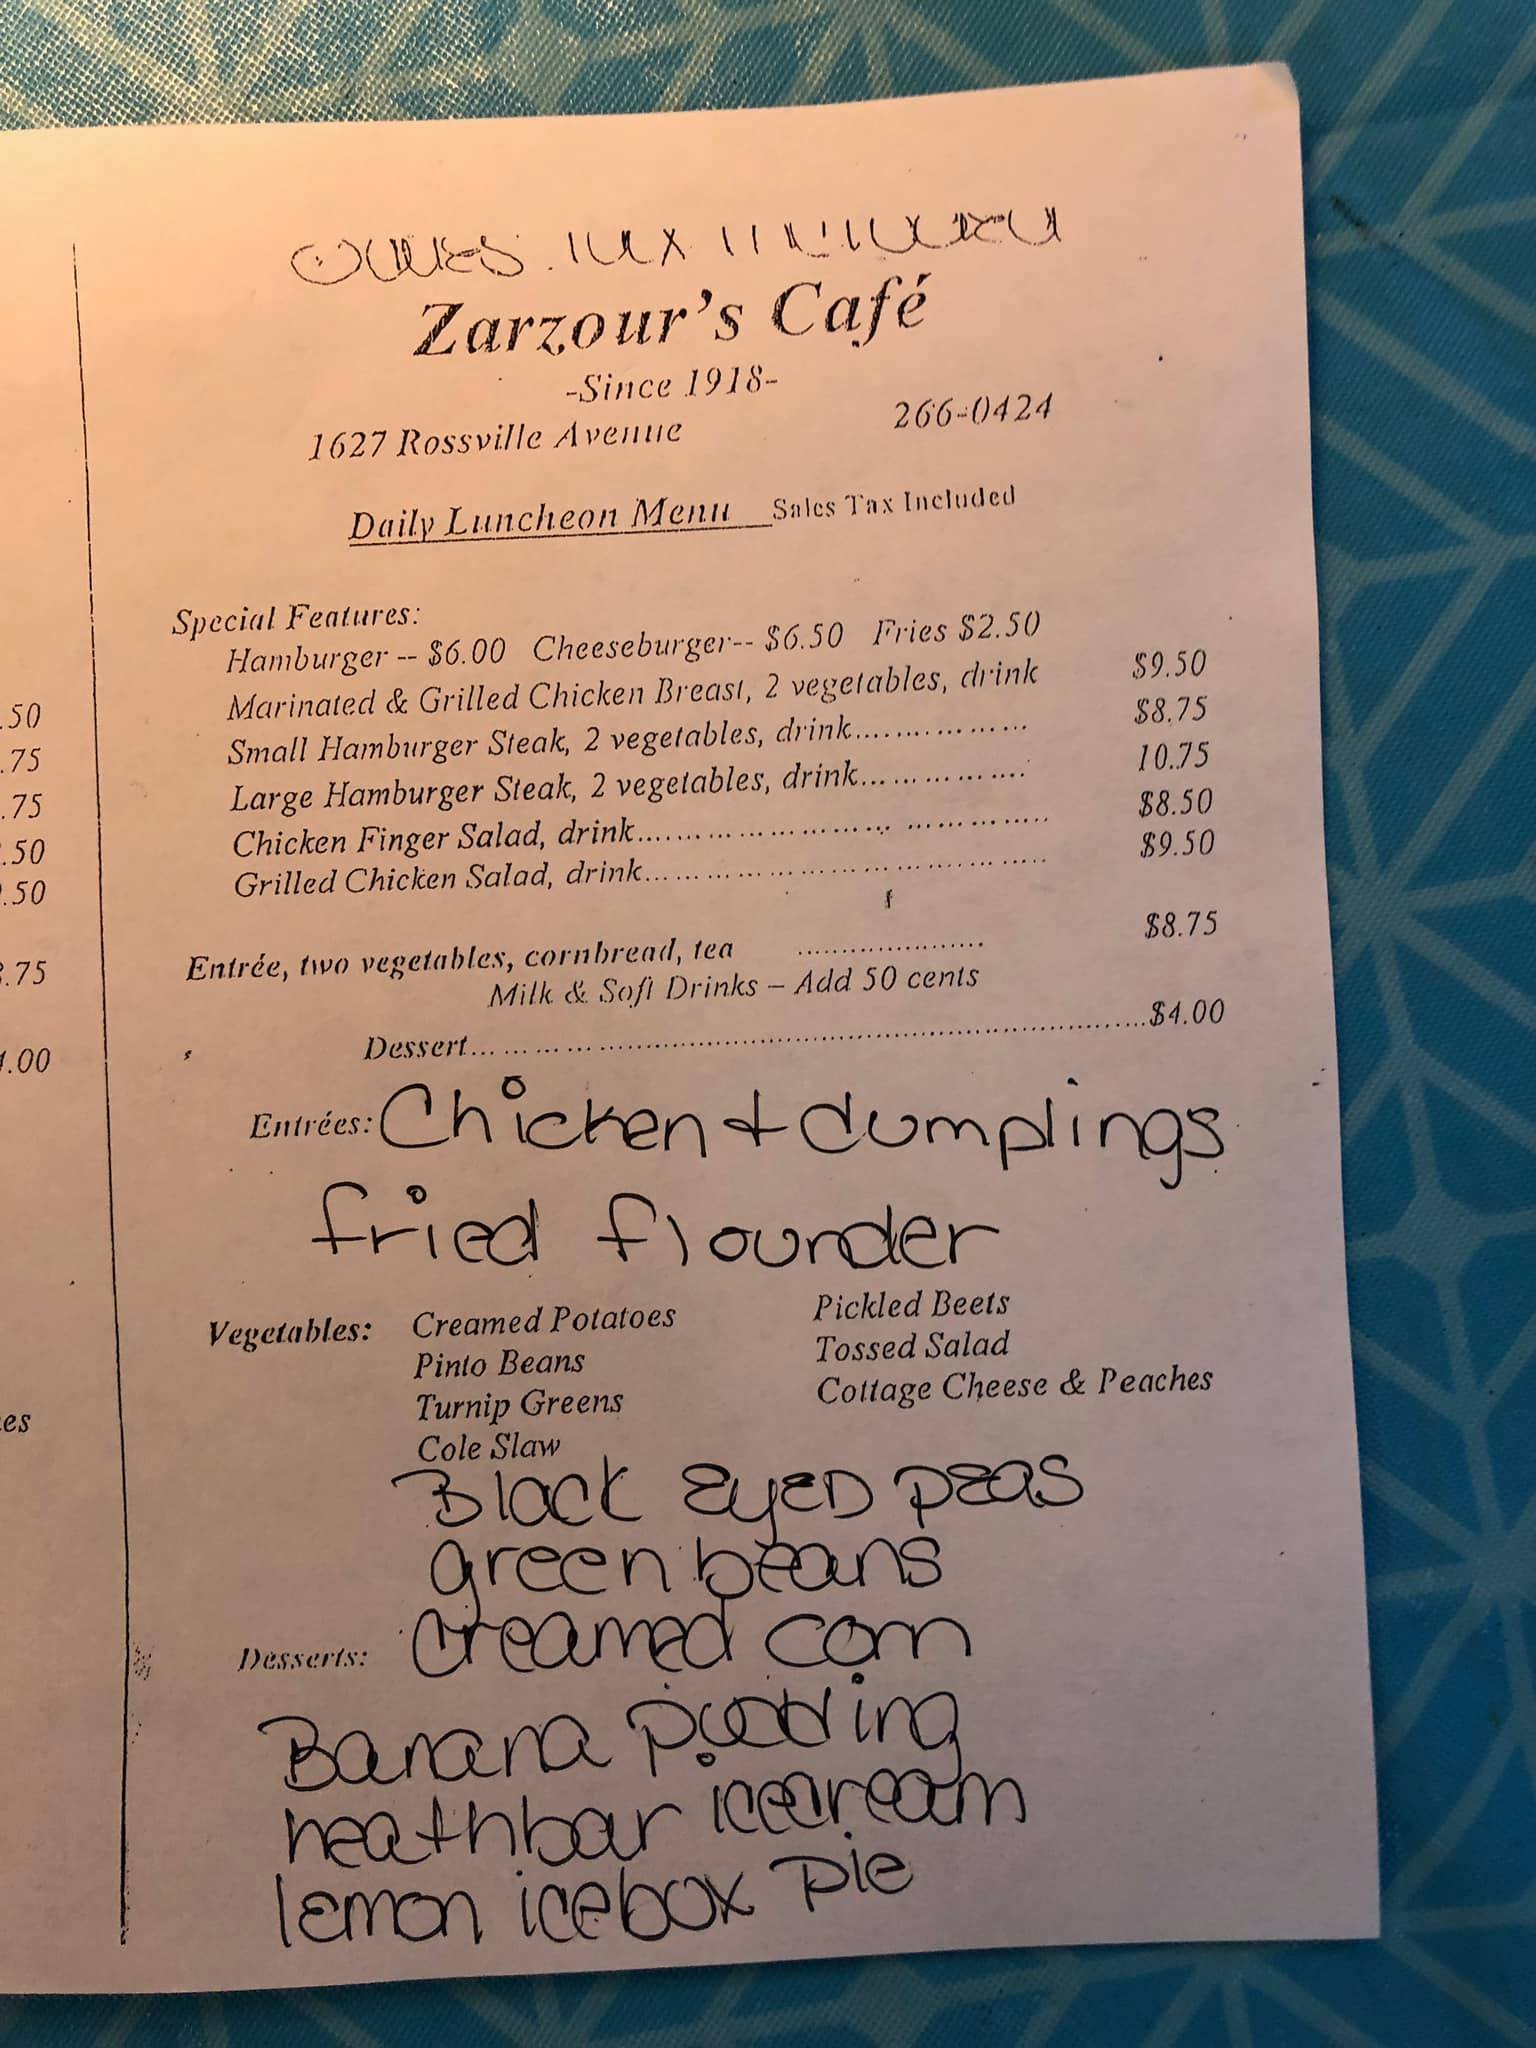 Zarzour's Café
-Since 1918-
1627 Rossville Avenue 266-0424
Daily Luncheon Menu Sales Tax Included
Special Features:
Hamburger -- $6.00 Cheeseburger-- $6.50 Fries $2.50
Marinated & Grilled Chicken Breast, 2 vegetables, drink $9.50
Small Hamburger Steak, 2 vegetables, drink................ $8.75
Large Hamburger Steak, 2 vegetables, drink................ 10.75
Chicken Finger Salad, drink.................................... $8.50
Grilled Chicken Salad, drink.................................... $9.50
Entrée, two vegetables, cornbread, tea ..................... $8.75
Milk & Soft Drinks – Add 50 cents
Dessert............................................................$4.00
Entrées: Chicken + dumplings
fried flounder
Vegetables: Creamed Potatoes Pickled Beets
Pinto Beans Tossed Salad
Turnip Greens Cottage Cheese & Peaches
Cole Slaw
Black EyED PEAS
green beans
creamed corn
Desserts:
Banana pudding
heathbar icecream
lemon icebox pie
.50
.75
.75
.50
.50
.75
.00
es